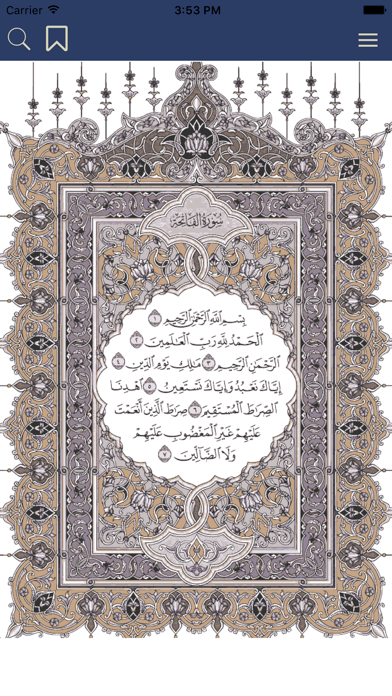 Carrier 3:53 PM
سُورَةُ الفَاتِحَةِ
بِسْمِ اللَّهِ الرَّحْمَٰنِ الرَّحِيمِ ١
الْحَمْدُ لِلَّهِ رَبِّ الْعَٰلَمِينَ ٢
الرَّحْمَٰنِ الرَّحِيمِ ٣ مَٰلِكِ يَوْمِ الدِّينِ ٤
إِيَّاكَ نَعْبُدُ وَإِيَّاكَ نَسْتَعِينُ ٥ اهْدِنَا
الصِّرَٰطَ الْمُسْتَقِيمَ ٦ صِرَٰطَ الَّذِينَ أَنْعَمْتَ
عَلَيْهِمْ غَيْرِ الْمَغْضُوبِ عَلَيْهِمْ
وَلَا الضَّالِّينَ ٧